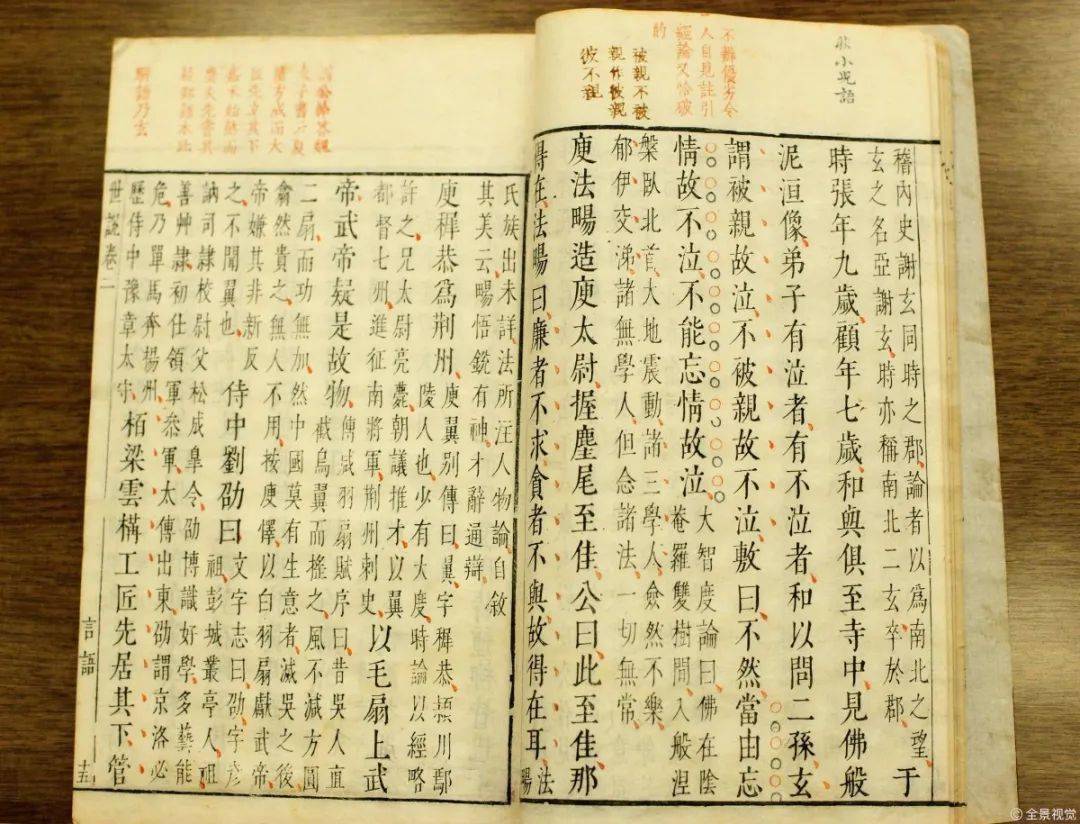 狀小兒語
不辨優劣令
人自見註引
經論又恰破
的
被親不被
親作彼親
彼不親
稽內史謝玄同時之郡論者以爲南北之望
玄之名亞謝玄時亦稱南北二玄卒於郡
于
時張年九歲顧年七歲和與俱至寺中見佛般
泥洹像弟子有泣者有不泣者和以問二孫玄
謂被親故泣不被親故不泣敷曰不然當由忘
情故不泣不能忘情故泣
大智度論曰佛在陰
菴羅雙樹間入般涅
槃臥北首大地震動諸三學人僉然不樂
郁伊交涕諸無學人但念諸法一切無常
庾法暢造庾太尉握麈尾至佳公曰此至佳那
得在法暢曰廉者不求貪者不與故得在耳
法
暢
氏族出未詳法所注人物論自敘
其美云暢悟銳有神才辭通辯
庾穉恭爲荆州
庾翼别傳曰翼字穉恭潁川鄢
陵人也少有大度時論以經略
許之兄太尉亮薨朝議推才以翼
都督七州進征南將軍荆州刺史
以毛扇上武
帝武帝疑是故物
傅咸羽扇賦序曰昔吳人直
截烏翼而搖之風不減方圓
二扇而功無加然中國莫有生意者滅吳之後
翕然貴之無人不用按庾懌以白羽扇獻武帝
帝嫌其非新反
之不聞翼也
侍中劉劭曰
文字志曰劭字彥
祖彭城叢亭人祖
訥司隸校尉父松成臯令劭博識好學多藝能
善艸隸初仕領軍叅軍太傅出東劭謂京洛必
危乃單馬奔揚州
歷侍中豫章太守
柏梁雲構工匠先居其下管
世說卷二
言語
十五
© 全景视觉